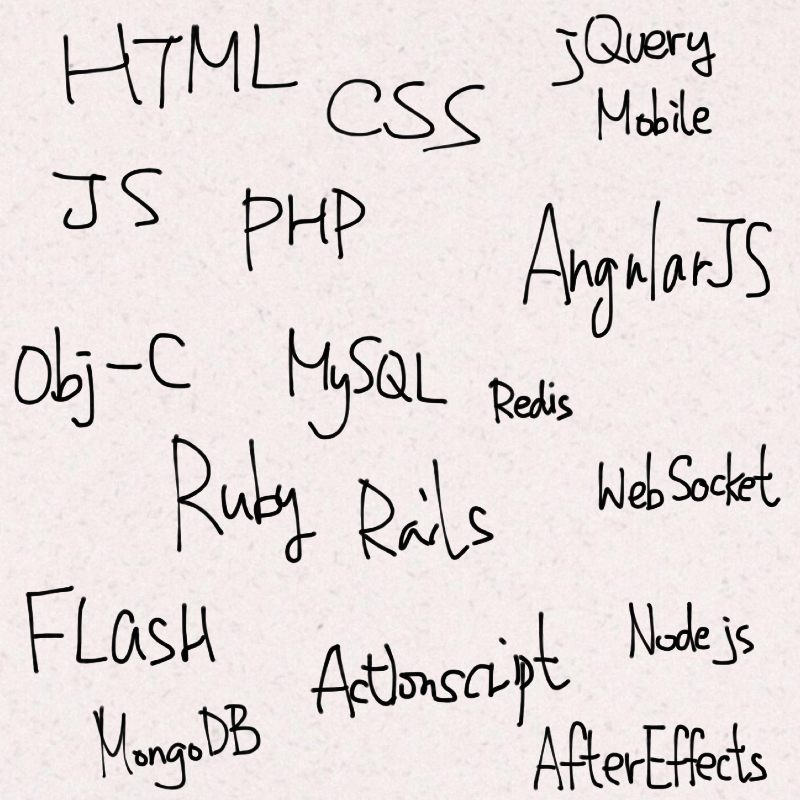 HTML
CSS
jQuery
Mobile
JS
PHP
AngularJS
Obj-C
MySQL
Redis
Ruby Rails
WebSocket
FLasH
Node js
Actionscript
MongoDB
AfterEffects